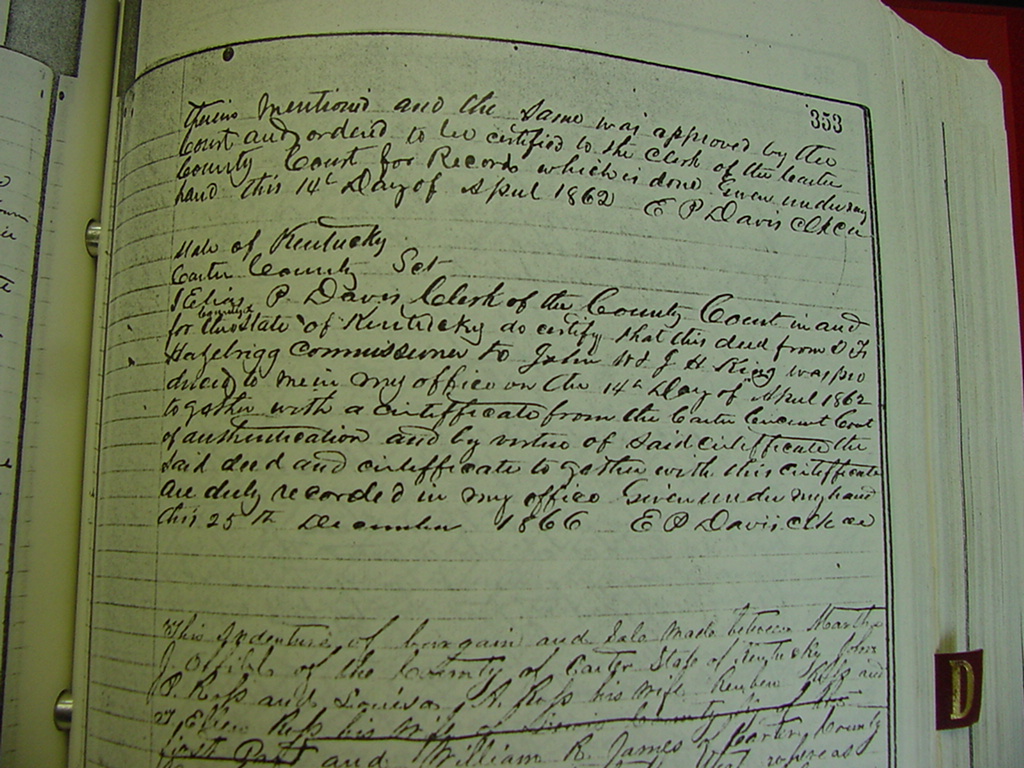 353
therein mentioned and the same was approved by the
Court and ordered to be certified to the Clerk of the Carter
County Court for Record which is done Given under my
hand this 14th Day of April 1862 E P Davis Clk
State of Kentucky
Carter County Sct
I Elias P. Davis Clerk of the County Court in and
for the County & State of Kentucky do certify that this deed from D F
Hazelrigg Commissioner to John W & J H King was pro
duced to me in my office on the 14th Day of April 1862
to gather with a certifficate from the Carter Circuit Cout
of authentication and by virtue of said certifficate the
said deed and certifficate to gether with this certifficate
are duly recorded in my office Given under my hand
this 25th December 1866 E P Davis clk
This Indenture of bourgain and Sale made between Martha
J. of the County of Carter State of Kentucky John
P. Ross and Louisa A. Ross his wife Reuben and
Ellen Ross his wife of County of the
first Part and William R. James of Carter County
whereas
D